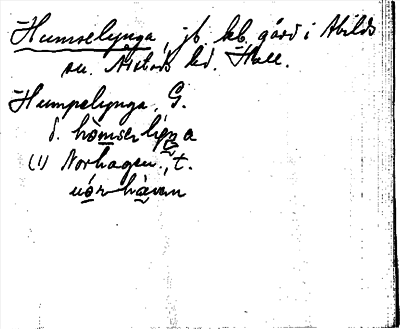 Humselynga, jb. kb. gård i Abilds
sn. Årstads hd. Hall.
Humpelynga, G.
d. hòmserlỳŋa
(1) Norhagen, t.
nórhàven